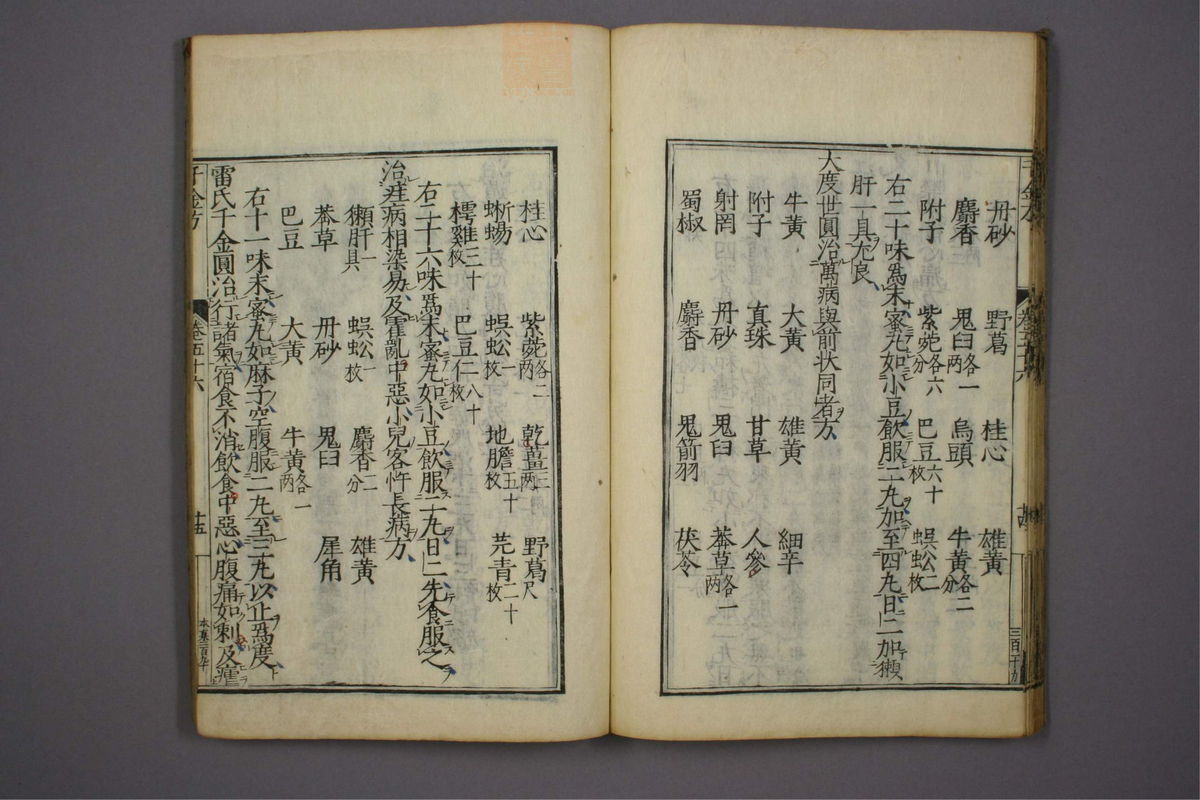 丹砂 野葛 桂心 雄黄
麝香 鬼臼各一两 烏頭 牛黄各二分
附子 紫菀各六分 巴豆六十枚 蜈蚣二枚
右二十味為末蜜丸如小豆飲服二丸加至四丸日二加獺
肝一具尤良
大度世圓治萬病與前状同者方
牛黄 大黄 雄黄 細辛
附子 真珠 甘草 人參
射罔 丹砂 鬼臼 莽草各一两
蜀椒 麝香 鬼箭羽 茯苓
桂心 紫菀各二两 乾薑三两 野葛尺
蜥蜴 蜈蚣一枚 地膽五十枚 芫青二十枚
樗雞三十枚 巴豆仁八十一枚
右二十六味為末蜜丸如小豆飲服二丸日二先食服之
治疰病相染易及霍亂中惡小兒客忤長病方
獺肝一具 蜈蚣一枚 麝香二分 雄黄
莽草 丹砂 鬼臼 犀角
巴豆 大黄 牛黄各一两
右十一味末蜜丸如麻子空腹服二丸至三丸以止為度
雷氏千金圓治行諸氣宿食不消飲食中惡心腹痛如刺及瘧
千金方 卷五十六 十五